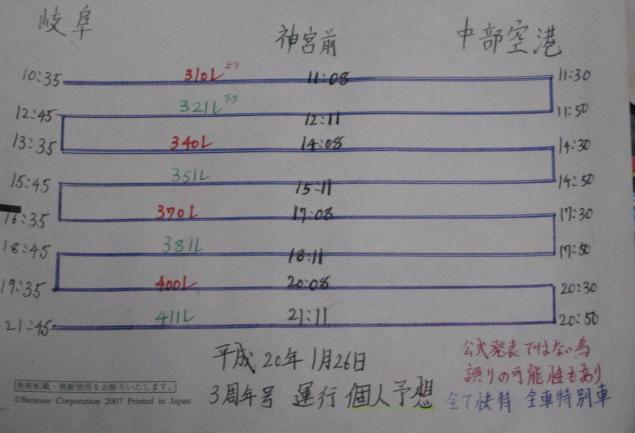 岐阜 神宮前 中部空港
10:35 310L 上り 11:08 11:30
12:45 321L 下り 12:11 11:50
13:35 340L 14:08 14:30
15:45 351L 15:11 14:50
16:35 370L 17:08 17:30
18:45 381L 18:11 17:50
19:35 400L 20:08 20:30
21:45 411L 21:11 20:50
平成20年1月26日
3周年号 運行 個人予想
公式発表ではない為
誤りの可能性もあり
全て快特 全車特別車
無断転載・無断使用をお断りいたします。
©Benesse Corporation 2007 Printed in Japan